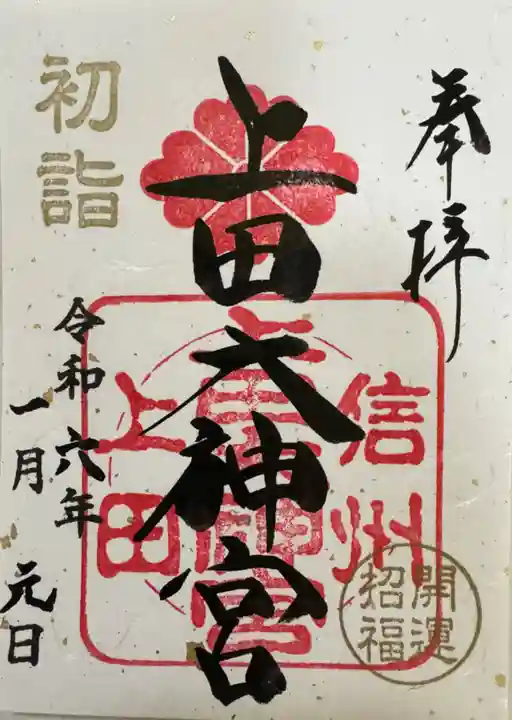 奉拝
上田大神宮
初詣
令和六年
一月
元日
信州
上田
開運
招福